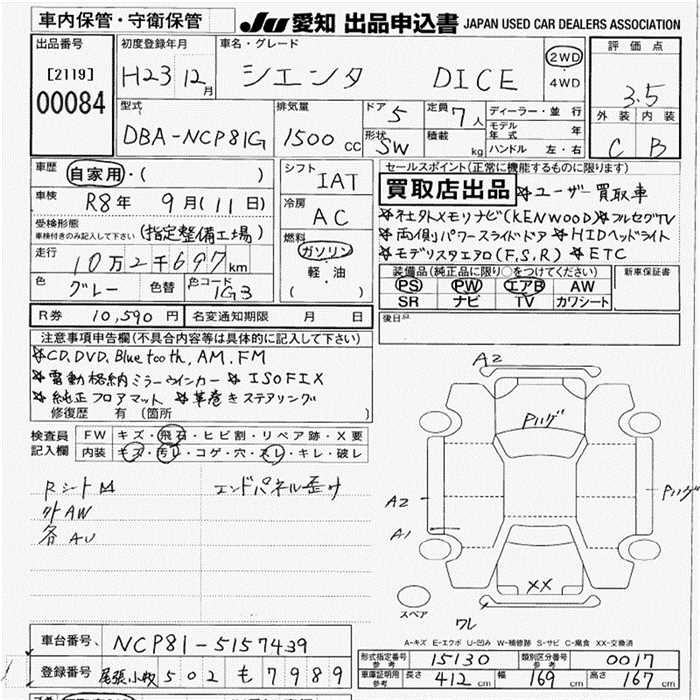 車内保管・守衛保管
JU 愛知 出品申込書 JAPAN USED CAR DEALERS ASSOCIATION
出品番号
[2119]
00084
初度登録年月
H23 12月
車名・グレード
シエンタ DICE
2WD
・
4WD
評価点
3.5
外装 内装
C B
型式
DBA-NCP81G
排気量
1500 cc
ドア 5
形状 SW
定員 7人
積載 kg
ディーラー・並行
モデル年式 年
ハンドル 左・右
車歴
自家用・( )
車検 R8年 9月(11日)
受検形態
車検付きのみ記入して下さい (指定整備工場)
走行 10万2千697km
色 グレー 色替 色コード 1G3
シフト IAT
冷房 AC
燃料
ガソリン
軽・油
( )
セールスポイント(正常に機能するものに限ります)
買取店出品 ☆ユーザー買取車
☆社外メモリナビ(KENWOOD)☆フルセグTV
☆両側パワースライドドア ☆HIDヘッドライト
☆モデリスタエアロ(F,S,R) ☆ETC
装備品(純正品に限り○をつけてください)
PS PW エアB AW
SR ナビ TV カワシート
新車保証書
R券 10,590円 名変通知期限 月 日
後日
注意事項申告欄(不具合内容等は具体的に記入して下さい)
☆CD,DVD,Bluetooth,AM,FM
☆電動格納ミラーウインカー ☆ISOFIX
☆純正フロアマット ☆革巻きステアリング
修復歴 有(箇所 )
検査員記入欄
FW キズ・飛石・ヒビ割・リペア跡・X要
内装 キズ・汚レ・コゲ・穴・スレ・キレ・破レ
RシートM エンドパネル歪け
外AW
各AU
A2
Pハゲ
A2
A1
Pハゲ
XX
スペア
ワレ
A-キズ E-エクボ U-凹み W-補修跡 S-サビ C-腐食 XX-交換済
車台番号 NCP81-5157439
登録番号 尾張小牧 502 も 7989
形式指定番号 参考 15130 類別区分番号 参考 0017
車庫証明用 参考 長さ 412cm 幅 169cm 高さ 167cm